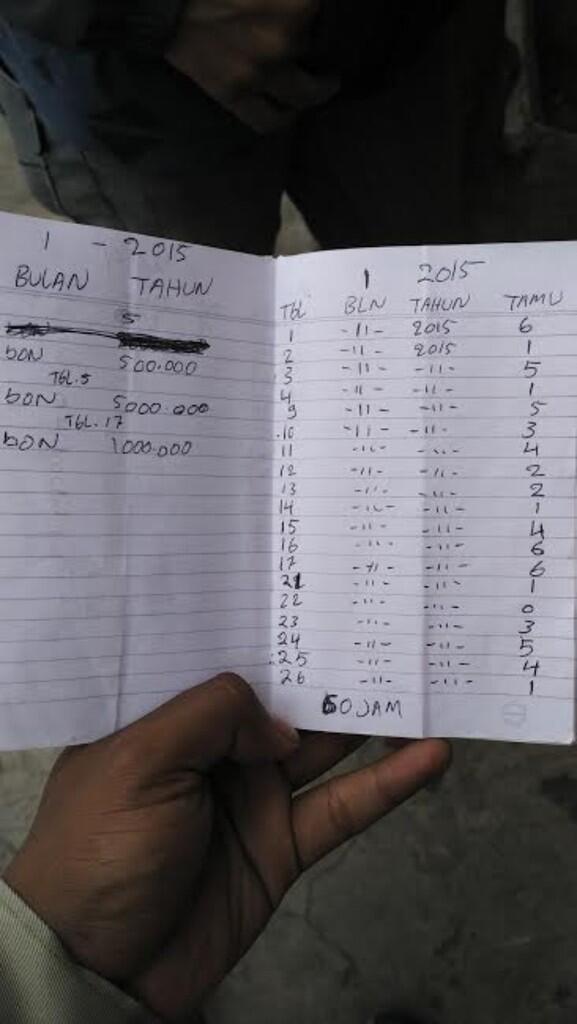 1 - 2015
BULAN TAHUN
5
BON 500.000
TGL.5
BON 5000.000
TGL.17
BON 1000.000
1 2015
TGL BLN TAHUN TAMU
1 -11- 2015 6
2 -11- 2015 1
3 -11- -11- 5
4 -11- -11- 1
9 -11- -11- 5
10 -11- -11- 3
11 -11- -11- 4
12 -11- -11- 2
13 -11- -11- 2
14 -11- -11- 1
15 -11- -11- 4
16 -11- -11- 6
17 -11- -11- 6
21 -11- -11- 1
22 -11- -11- 0
23 -11- -11- 3
24 -11- -11- 5
25 -11- -11- 4
26 -11- -11- 1
60 JAM